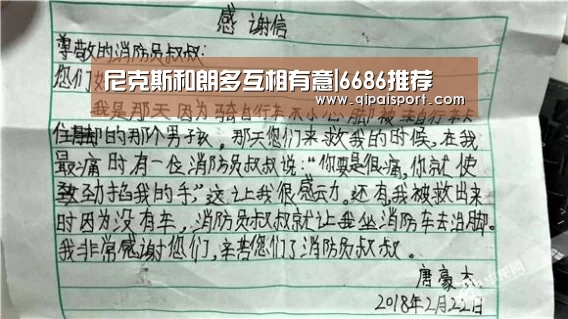 感谢信
尊敬的消防员叔叔:
您们好
尼克斯和朗多互相有意|6686推荐
www.qipaisport.com
我是那天因为骑自行车不小心脚被自行车卡
住脚的那个男子孩。那天您们来救我的时候,在我
最痛时有一位消防员叔叔说:“你要是很痛,你就使
劲掐我的手”这让我很感动。还有,我被救出来
时因为没有车,消防员叔叔就让我坐消防车去治脚。
我非常感谢您们,辛苦您们了消防员叔叔。
唐豪杰
2018年2月22日